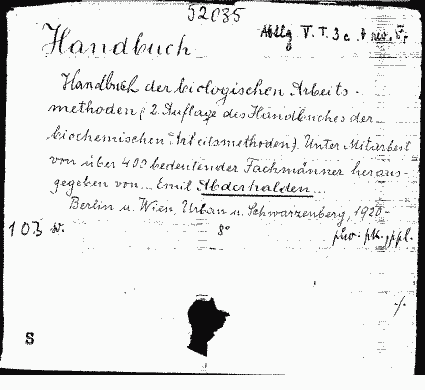 52035
Abtlg V. T. 3 c.
Handbuch
Handbuch der biologischen Arbeits-
methoden (2. Auflage des Handbuches der
biochemischen Arbeitsmethoden). Unter Mitarbeit
von über 400 bedeutender Fachmänner heraus-
gegeben von... Emil Abderhalden...
Berlin u. Wien, Urban u. Schwarzenberg, 1920-
103 8°
S